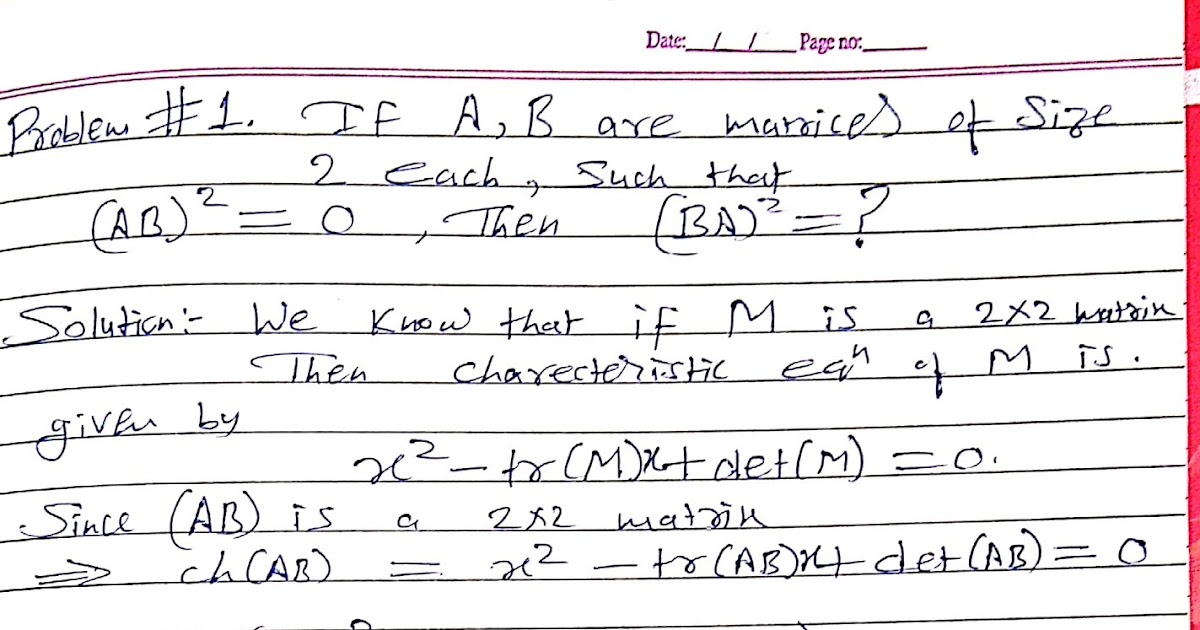 Date: / / Page no:
Problem #1. If A, B are marrices of size
2 each, such that
(AB)² = 0, Then (BA)² = ?
Solution:- We know that if M is a 2×2 matrix
Then charecteristic eqⁿ of M is.
given by
x² - tr(M)x + det(M) = 0.
Since (AB) is a 2×2 matrix
⇒ ch(AB) = x² - tr(AB)x + det(AB) = 0